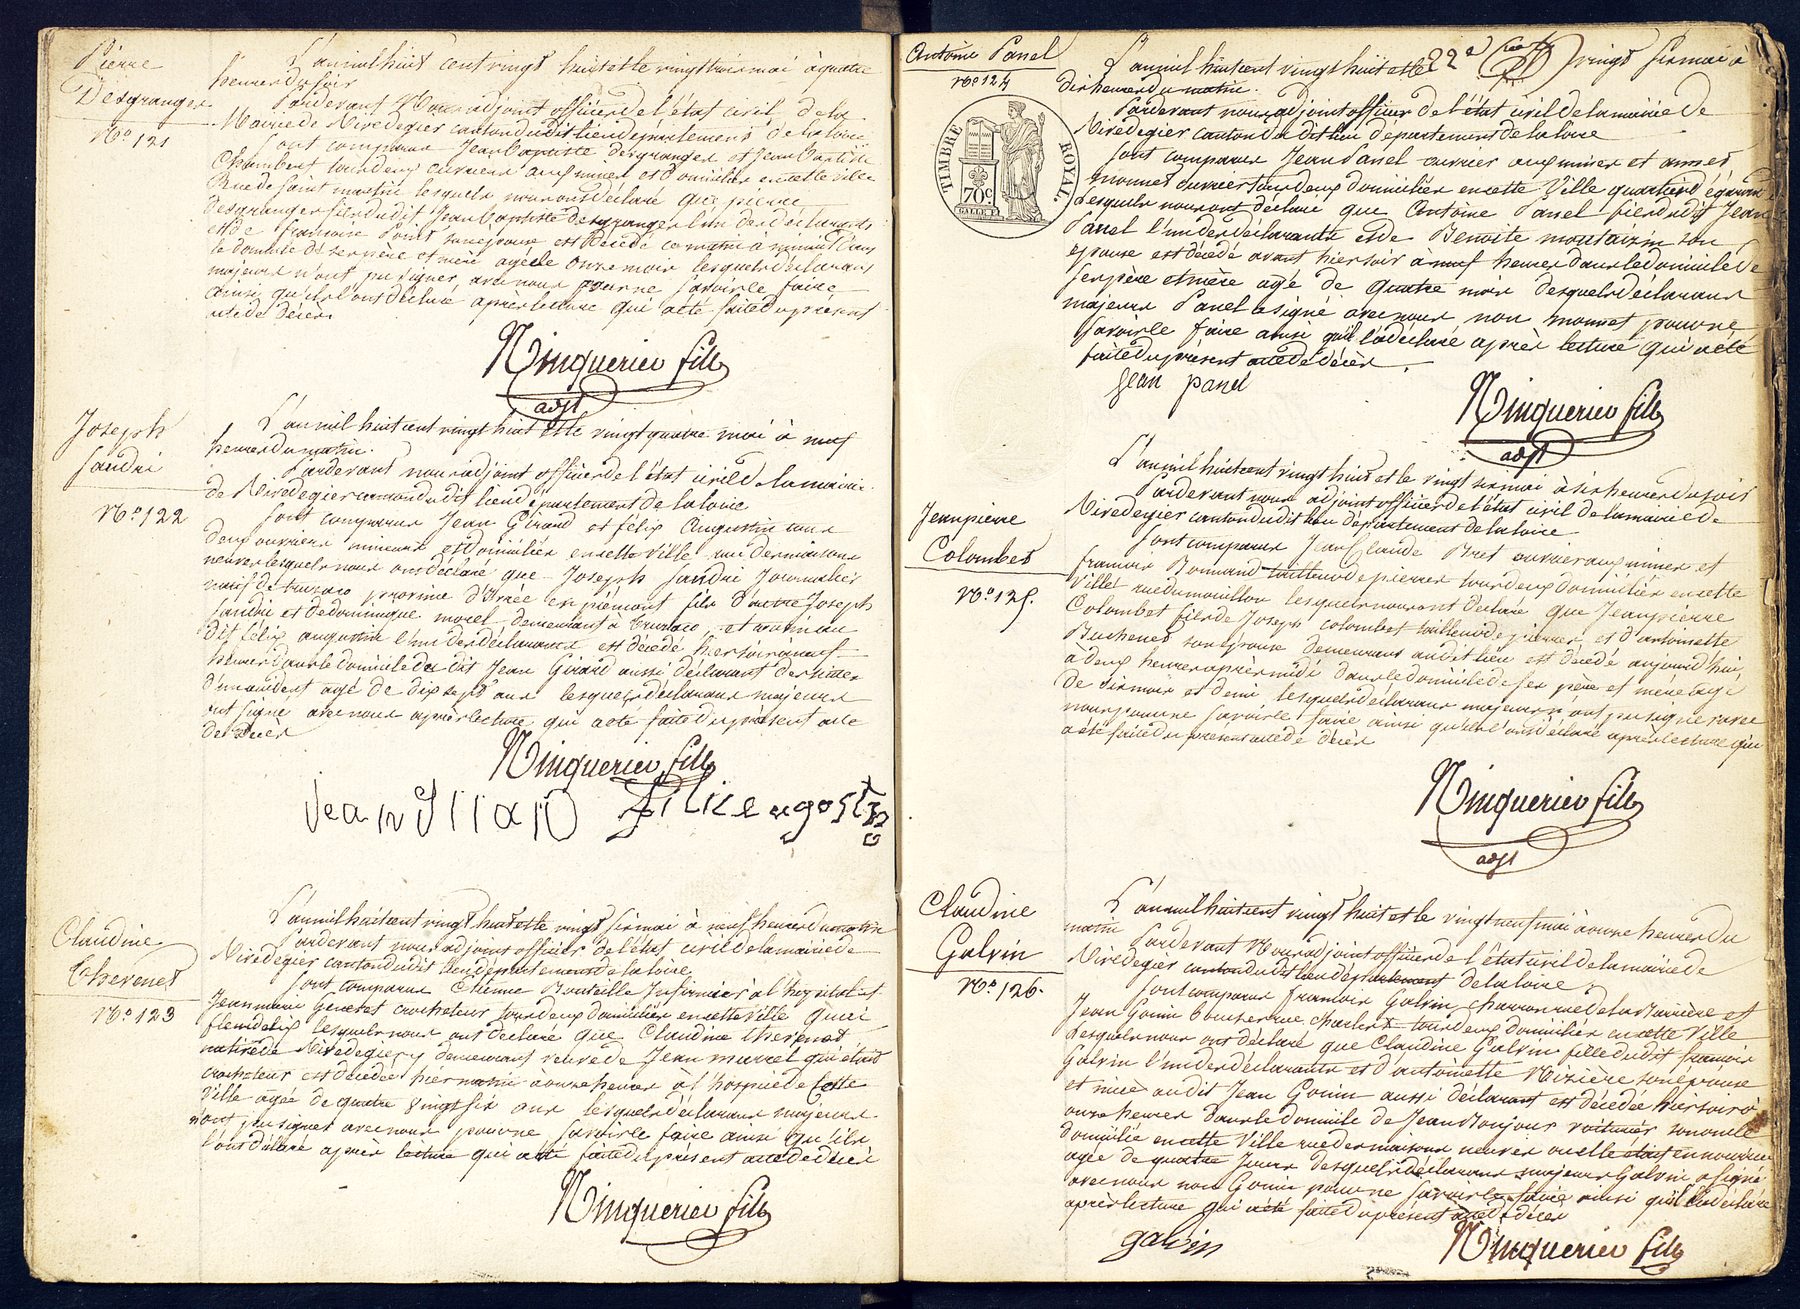 Pierre
Desgranges
No. 121
L'an mil huit cent vingt huit et le vingt trois mai à quatre
heures du soir
Pardevant Nous adjoint officier de l'état civil de la
Mairie de Rivedegier canton dudit lieu departement de la loire
ont comparus Jean Baptiste desgranges et Jean Baptiste
Chambert tous deux ouvriers aux mines et domiciliés en cette ville
Rue de saint martin lesquels nous ont déclaré que pierre
desgranges fils dudit Jean Baptiste desgranges l'un des déclarants
et de francoise Point son épouse est décédé ce matin à minuit dans
le domicile de ses père et mère agé de onze mois lesquels déclarans
majeurs n'ont pu signer avec nous pour ne savoir le faire
ainsi qu'ils l'ont déclaré après lecture qui a été faite du présent
acte de décès.
Ninquerier fils
adjt
Joseph
Sandri
No. 122
L'an mil huit cent vingt huit et le vingt quatre mai à neuf
heures du matin.
Pardevant nous adjoint officier de l'état civil de la mairie
de Rivedegier canton du dit lieu département de la loire
sont comparus Jean Girard et félix Augustin tous
deux ouvriers mineurs et domiciliés en cette ville rue des maisons
neuves lesquels nous ont déclaré que Joseph Sandri Journalier
natif de province d'Ivrée en piémont fils d'autre Joseph
Sandri et de dominique morel demeurant à et cousin au
dit félix augustin l'un des déclarants est décédé hier soir à neuf
heures dans le domicile du dit Jean Girard aussi déclarant des suites
d'un accident agé de dix sept ans lesquels déclarans majeurs
ont signé avec nous après lecture qui a été faite du présent acte
de décès
Ninquerier fils
Jean Girard felice agostino
Claudine
Thevenet
No. 123
L'an mil huit cent vingt huit et le vingt six mai à neuf heures du matin
Pardevant nous adjoint officier de l'état civil de la mairie de
Rivedegier canton dudit lieu departement de la loire
sont comparus Etienne Bouteille Infirmier à l'hopital et
Jean marie crocheteur tous deux domiciliés en cette ville quai
lesquels nous ont déclaré que Claudine thevenet
native de Rivedegier y demeurant veuve de Jean marcel qui était
crocheteur est décédée hier matin à onze heures à l'hospice de Cette
Ville agée de quatre vingt six ans lesquels déclarans majeurs
n'ont pu signer avec nous pour ne savoir le faire ainsi qu'ils
l'ont déclaré après lecture qui a été faite du présent acte de décès
Ninquerier fils
Antoine Panel
No. 124
TIMBRE ROYAL.
70c
22e
L'an mil huit cent vingt huit et le vingt six mai à
dix heures du matin.
Pardevant nous adjoint officier de l'état civil de la mairie de
Rivedegier canton du dit lieu departement de la loire
sont comparus Jean Panel ouvrier aux mines et
monnet ouvrier tous deux domiciliés en cette Ville quartier d'égarande
Lesquels nous ont déclaré que Antoine Panel fils dudit Jean
Panel l'un des declarants et de Benoite son
epouse est décédé avant hier soir à neuf heures dans le domicile de
ses père et mère agé de quatre mois Lesquels déclarans
majeurs Panel a signé avec nous, non monnet pour ne
savoir le faire ainsi qu'il l'a déclaré après lecture qui a été
faite du présent acte de décès.
jean panel
Ninquerier fils
adjt
Jeanpierre
Colombet
No. 125.
L'an mil huit cent vingt huit et le vingt six mai à six heures du soir
Pardevant nous adjoint officier de l'état civil de la mairie de
Rivedegier canton du dit lieu département de la loire
sont comparus Jean Claude Bret ouvrier aux mines et
francois Bonnand tailleur de pierres tous deux domiciliés en cette
Ville rue du mouillon lesquels nous ont déclaré que Jean pierre
Colombet fils de Joseph colombet tailleur de pierres et d'antoinette
son épouse demeurans audit lieu est décédé aujourd'hui
à deux heures après midi dans le domicile de ses père et mère agé
de six mois et demi lesquels déclarans majeurs n'ont pu signer avec
nous pour ne savoir le faire ainsi qu'ils l'ont déclaré après lecture qui
a été faite du présent acte de décès
Ninquerier fils
adjt
Claudine
Galvin
No. 126.
L'an mil huit cent vingt huit et le vingt neuf mai à onze heures du
matin
Pardevant Nous adjoint officier de l'état civil de la mairie de
Rivedegier canton du dit lieu departement de la loire.
sont comparus francois Galvin charron rue de la barrière et
Jean Gonin rue charles X tous deux domiciliés en cette Ville
Lesquels nous ont déclaré que Claudine Galvin fille du dit francois
Galvin l'un des déclarants et d'antoinette Rizière son épouse
et nièce au dit Jean Gonin aussi déclarant est décédée hier soir à
onze heures dans le domicile de Jean Bonjour voiturier son oncle
domicilié en cette Ville rue des maisons neuves ou elle était en nourrice
agée de quatre Jours Lesquels déclarans majeurs Galvin a signé
avec nous non Gonin pour ne savoir le faire ainsi qu'il l'a déclaré
après lecture qui a été faite du présent acte de décès
galvin
Ninquerier fils